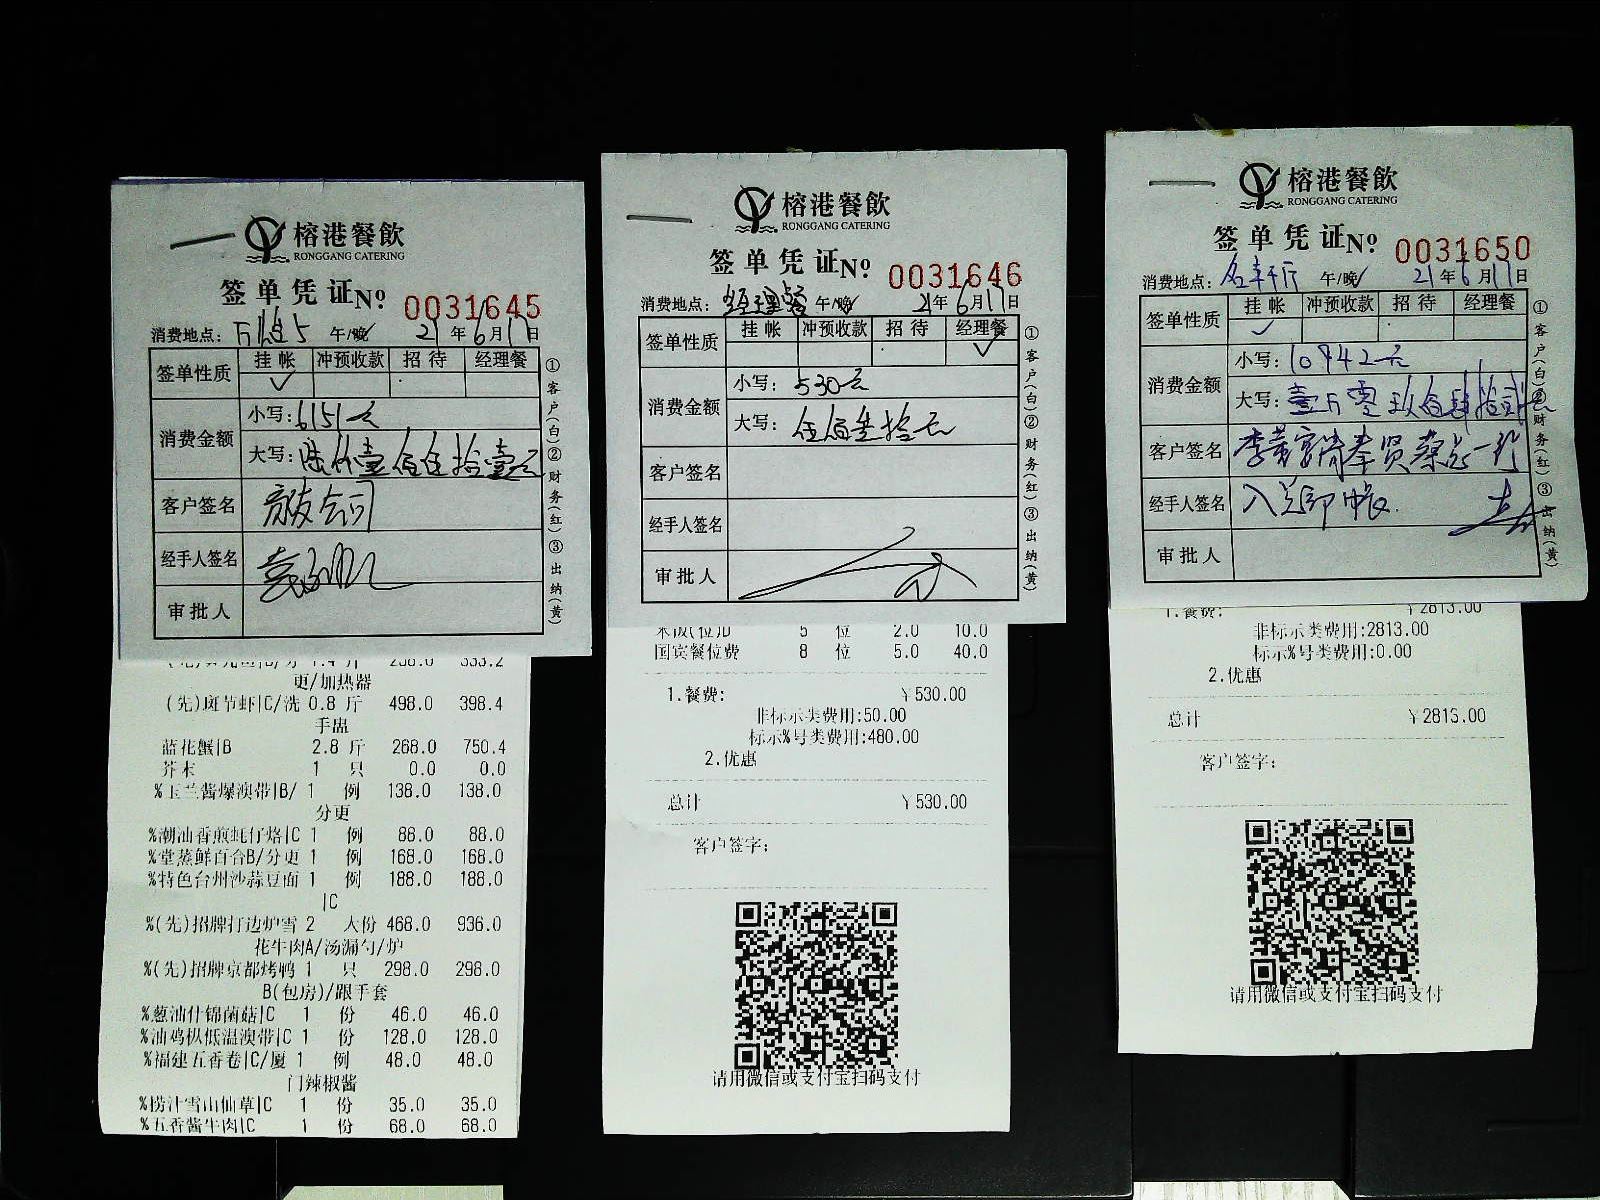 榕港餐飲
RONGGANG CATERING
签单凭证 № 0031645
消费地点: 午/晚 21年6月17日
签单性质 挂帐 冲预收款 招待 经理餐
✓
消费金额 小写: 6151元
大写: 陆仟壹佰伍拾壹元
客户签名
经手人签名
审批人
①客户(白)②财务(红)③出纳(黄)
更/加热器
(先)斑节虾|C/洗 0.8 斤 498.0 398.4
手盅
蓝花蟹|B 2.8 斤 268.0 750.4
芥末 1 只 0.0 0.0
%玉兰酱爆澳带|B/ 1 例 138.0 138.0
分更
%潮油香煎蚝仔烙|C 1 例 88.0 88.0
%堂蒸鲜百合B/分更 1 例 168.0 168.0
%特色台州沙蒜豆面 1 例 188.0 188.0
|C
%(先)招牌打边炉雪 2 大份 468.0 936.0
花牛肉A/汤漏勺/炉
%(先)招牌京都烤鸭 1 只 298.0 298.0
B(包房)/跟手套
%葱油什锦菌菇|C 1 份 46.0 46.0
%油鸡枞低温澳带|C 1 份 128.0 128.0
%福建五香卷|C/厦 1 例 48.0 48.0
门辣椒酱
%捞汁雪山仙草|C 1 份 35.0 35.0
%五香酱牛肉|C 1 份 68.0 68.0
榕港餐飲
RONGGANG CATERING
签单凭证 № 0031646
消费地点: 经理餐 午/晚 21年6月17日
签单性质 挂帐 冲预收款 招待 经理餐
✓
消费金额 小写: 530元
大写: 伍佰叁拾元
客户签名
经手人签名
审批人
①客户(白)②财务(红)③出纳(黄)
米饭(位)D 5 位 2.0 10.0
国宾餐位费 8 位 5.0 40.0
1.餐费: ￥530.00
非标示类费用:50.00
标示%号类费用:480.00
2.优惠
总计 ￥530.00
客户签字:
请用微信或支付宝扫码支付
榕港餐飲
RONGGANG CATERING
签单凭证 № 0031650
消费地点: 名轩厅 午/晚 21年6月17日
签单性质 挂帐 冲预收款 招待 经理餐
✓
消费金额 小写: 10942元
大写: 壹万零玖佰肆拾贰元
客户签名
经手人签名
审批人
①客户(白)②财务(红)③出纳(黄)
1.餐费: ￥2813.00
非标示类费用:2813.00
标示%号类费用:0.00
2.优惠
总计 ￥2813.00
客户签字:
请用微信或支付宝扫码支付